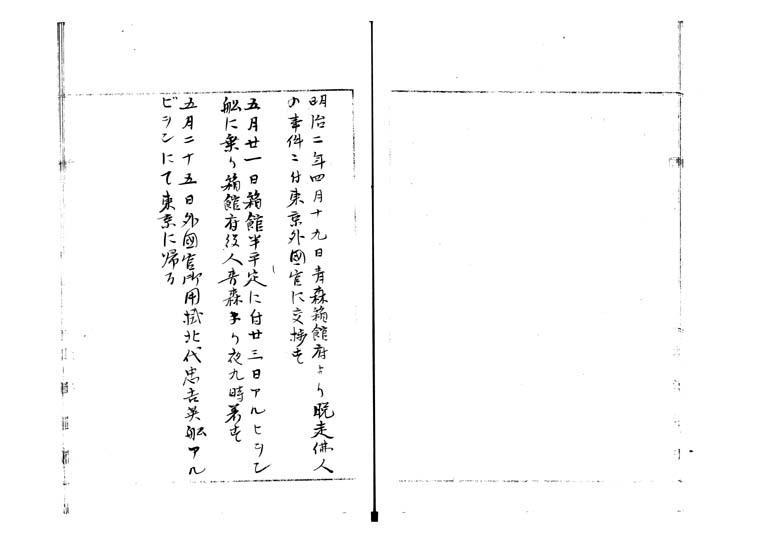 明治二年四月十九日青森箱館府より脱走佛人
の事件ニ付東京外國官に交捗す
五月廿一日箱館半平定に付廿三日アルヒヨン
舩に乗り箱館府役人青森より夜九時着す
五月二十五日外國官御用掛北代忠吉英舩アル
ビヨンにて東京に帰る